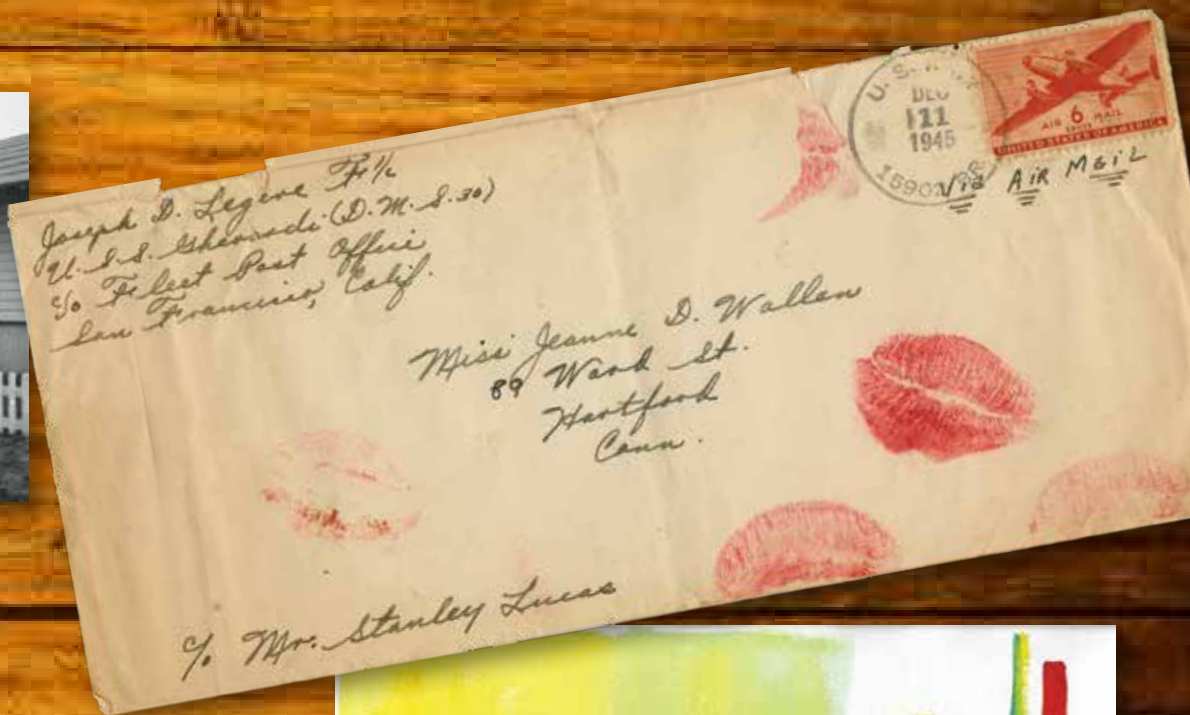 Joseph D. Legere F1/c
U.S.S. (D.M.S.30)
c/o Fleet Post Office
San Francisco, Calif.
DEC
11
1945
AIR 6 MAIL
CENTS
UNITED STATES OF AMERICA
Via AIR MAIL
Miss Jeanne D. Wallen
89 Ward St.
Hartford
Conn.
c/o Mr. Stanley Lucas